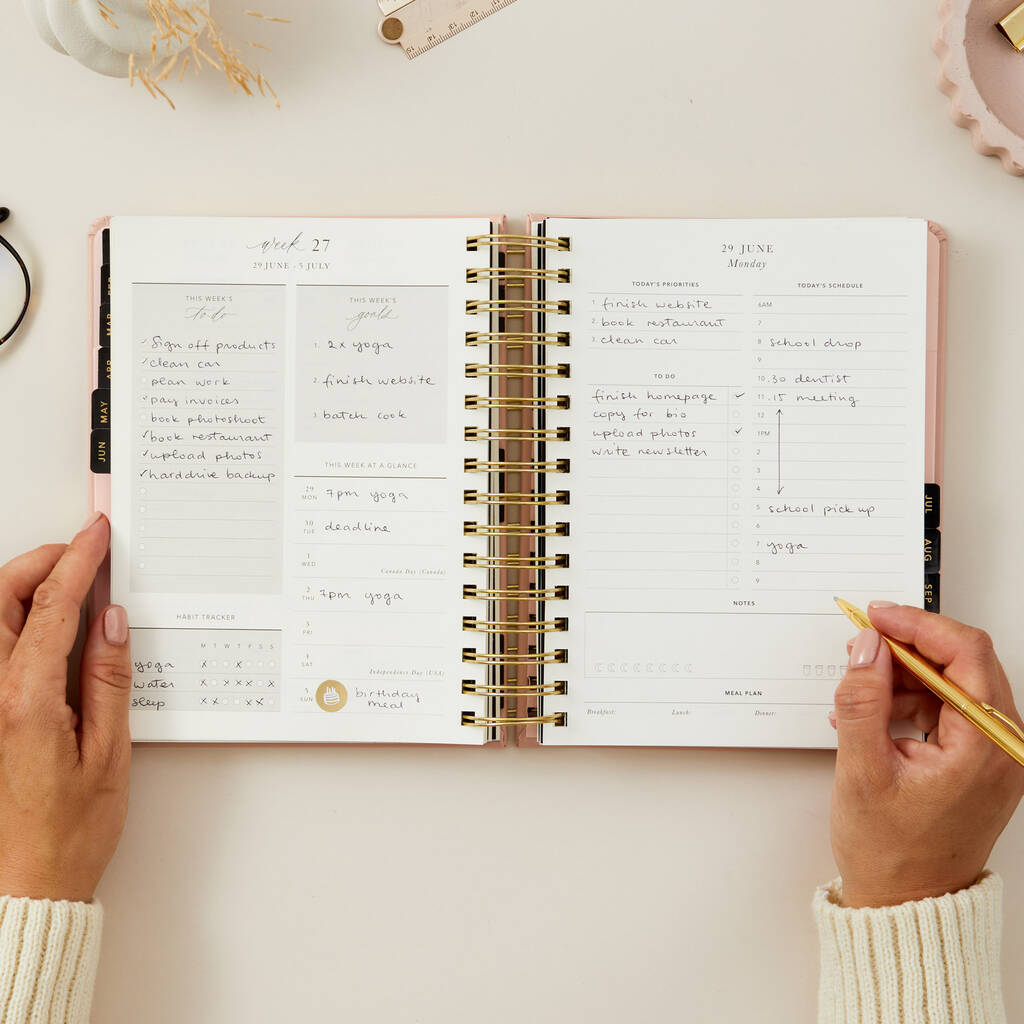 week 27
29 JUNE - 5 JULY
THIS WEEK'S
to do
✓ Sign off products
✓ clean car
plan work
✓ pay invoices
book photoshoot
✓ book restaurant
✓ upload photos
✓ harddrive backup
HABIT TRACKER
M T W T F S S
yoga x x
water x x x x x x
sleep x x x x
THIS WEEK'S
goals
1. 2x yoga
2. finish website
3. batch cook
THIS WEEK AT A GLANCE
29 MON 7pm yoga
30 TUE deadline
1 WED
Canada Day (Canada)
2 THU 7pm yoga
3 FRI
4 SAT
Independence Day (USA)
5 SUN birthday
meal
MAR
APR
MAY
JUN
29 JUNE
Monday
TODAY'S PRIORITIES
1. finish website
2. book restaurant
3. clean car
TO DO
finish homepage ✓
copy for bio
upload photos ✓
write newsletter
TODAY'S SCHEDULE
6AM
7
8 school drop
9
10 .30 dentist
11 .15 meeting
12
1PM
2
3
4
5 school pick up
6
7 yoga
8
9
NOTES
MEAL PLAN
Breakfast: Lunch: Dinner:
JUL
AUG
SEP
15 14 13 12 11 10